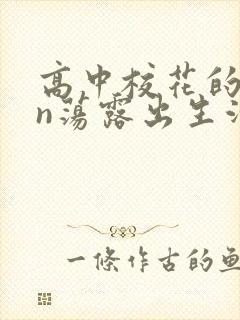 高中校花的
n蕩露出生
一條作古的